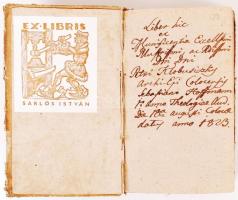 EX·LIBRIS
SARLÓS ISTVÁN
Liber hic
ex
Munificentia Excellmi
Illustrissmi ac Rssmi
Dni Dni
Petri Klobusiczky
Archi-Eppi Colocensis
Sebastiani Hoffmann
1i anni Theologiae Aud.
die 18a augusti Colocae
datus anno 1823.